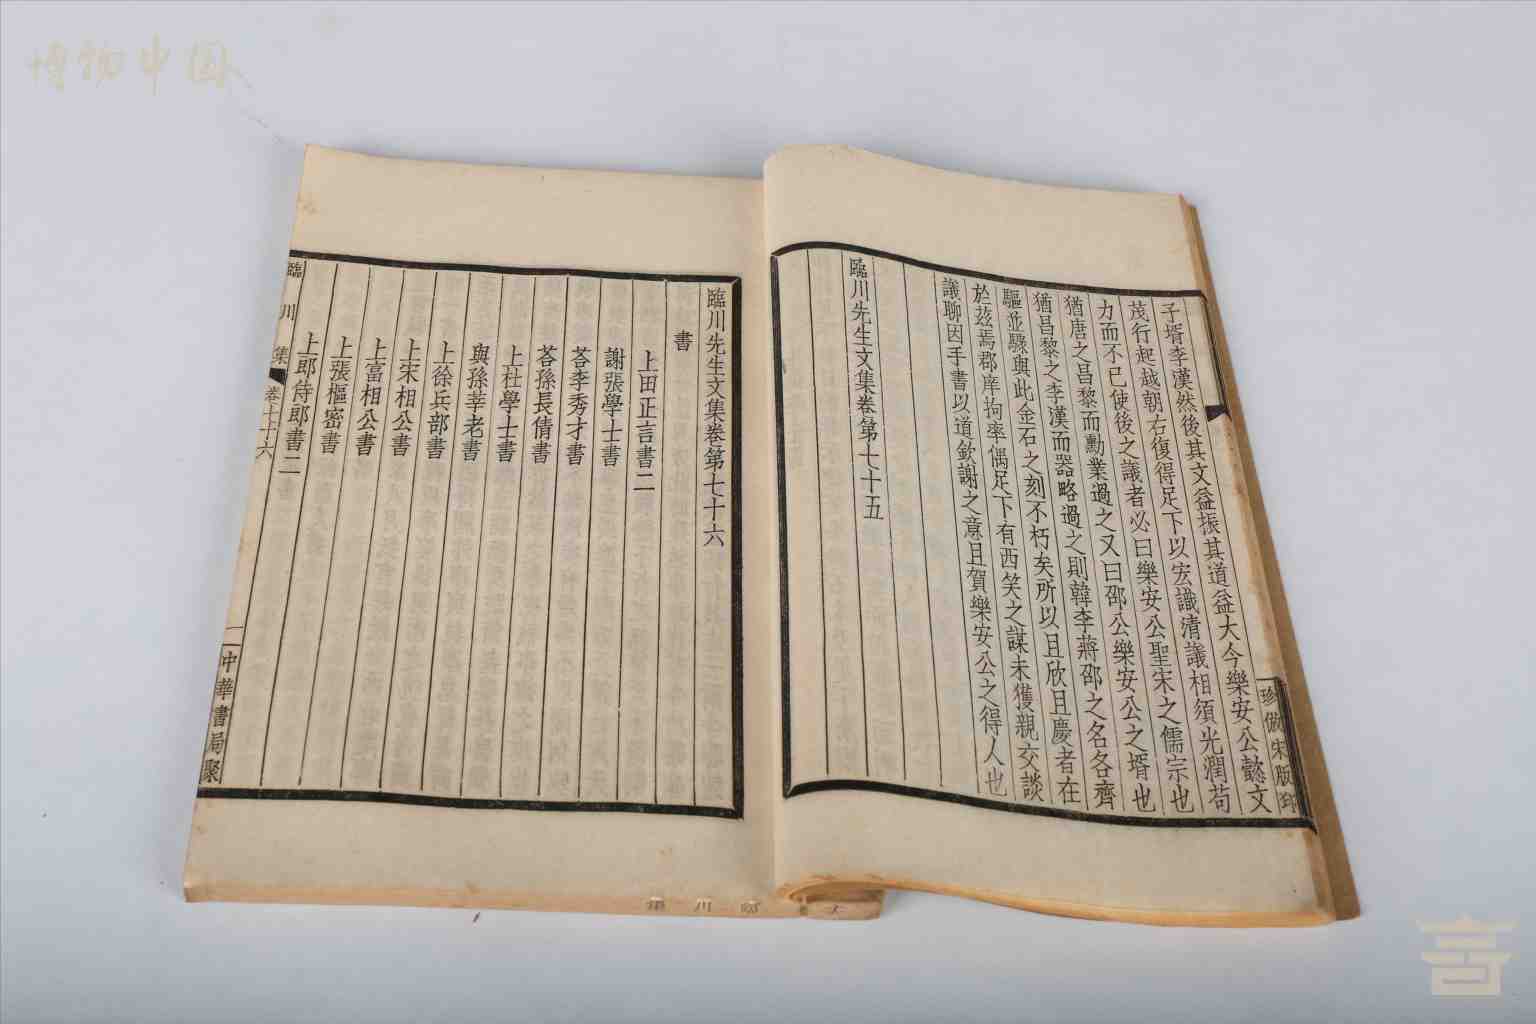 博物中国
子壻李漢然後其文益振其道益大今樂安公懿文
茂行起越朝右復得足下以宏識清議相須光潤苟
力而不已使後之議者必曰樂安公聖宋之儒宗也
猶唐之昌黎而勳業過之又曰邵公樂安公之壻也
猶昌黎之李漢而器略過之則韓李蔣邵之名各齊
驅並驟與此金石之刻不朽矣所以且欣且慶者在
於茲焉郡庠拘率偶足下有西笑之謀未獲親交談
議聊因手書以道欽謝之意且賀樂安公之得人也
臨川先生文集卷第七十五
珍倣宋版印
臨川先生文集卷第七十六
書
上田正言書二
謝張學士書
荅李秀才書
荅孫長倩書
上杜學士書
與孫莘老書
上徐兵部書
上宋相公書
上富相公書
上張樞密書
上郎侍郎書二
臨川集
卷七十六
一
中華書局聚
臨川集